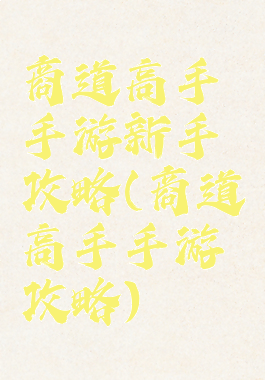 商道高手
手游新手
攻略(商道
高手手游
攻略)